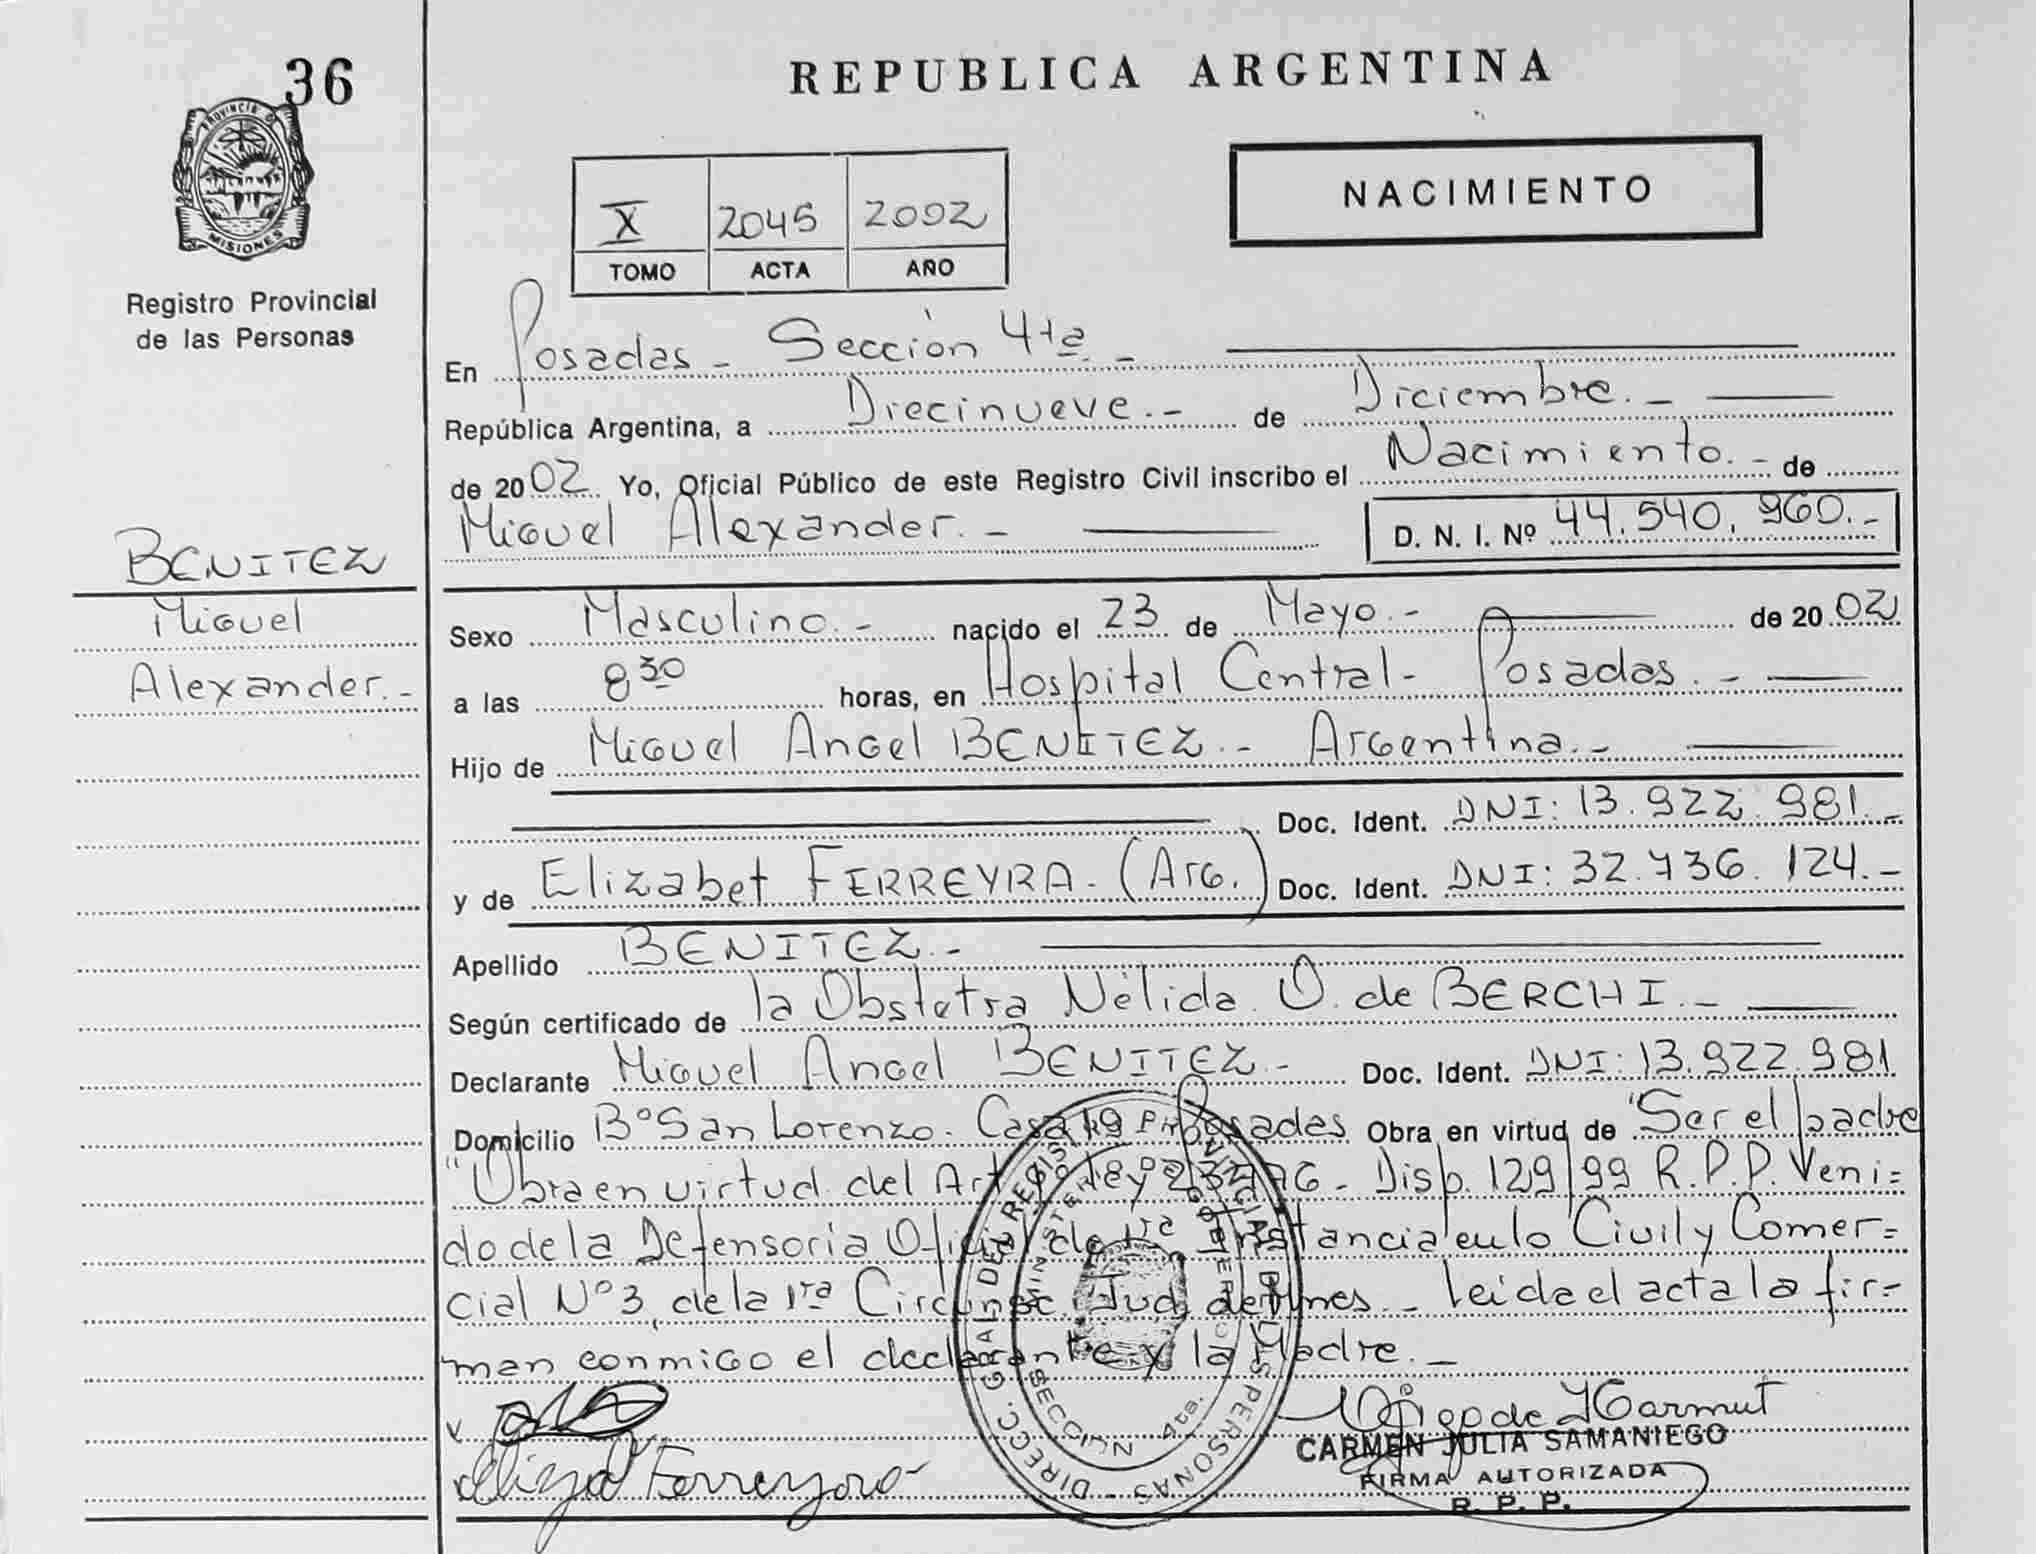 36
REPUBLICA ARGENTINA
PROVINCIA DE
MISIONES
Registro Provincial
de las Personas
X 2045 2002
TOMO ACTA AÑO
NACIMIENTO
En Posadas - Sección 4ta. -
República Argentina, a Diecinueve.- de Diciembre. -
de 2002 Yo, Oficial Público de este Registro Civil inscribo el Nacimiento. - de
Miguel Alexander. - D. N. I. Nº 44.540.960.-
BENITEZ
Miguel
Alexander. -
Sexo Masculino. - nacido el 23 de Mayo. - de 2002
a las 8,30 horas, en Hospital Central - Posadas. -
Hijo de Miguel Angel BENITEZ.- Argentina. -
Doc. Ident. DNI: 13.922.981.-
y de Elizabet FERREYRA - (Arg.) Doc. Ident. DNI: 32.736.124.-
Apellido BENITEZ. -
Según certificado de la Obstetra Nélida O. de BERCHI. -
Declarante Miguel Angel BENITEZ.- Doc. Ident. DNI: 13.922.981
Domicilio Bº San Lorenzo. Casa 19 Posadas Obra en virtud de "Ser el padre
"Obra en virtud del Art. Ley - Disp. 129/99 R.P.P. Veni=
do de la Defensoría Oficial de 1ra Instancia en lo Civil y Comer=
cial Nº 3, de la 1ra Circunsc. Jud. de Mnes. - Leida el acta la fir=
man conmigo el declarante y la Madre. -
DIRECC. GRAL. DEL REGIST. PROVINCIAL DE LAS PERSONAS
MINISTERIO DE GOBIERNO
SECCION 4ta.
Ferreyra
CARMEN JULIA SAMANIEGO
FIRMA AUTORIZADA
R. P. P.